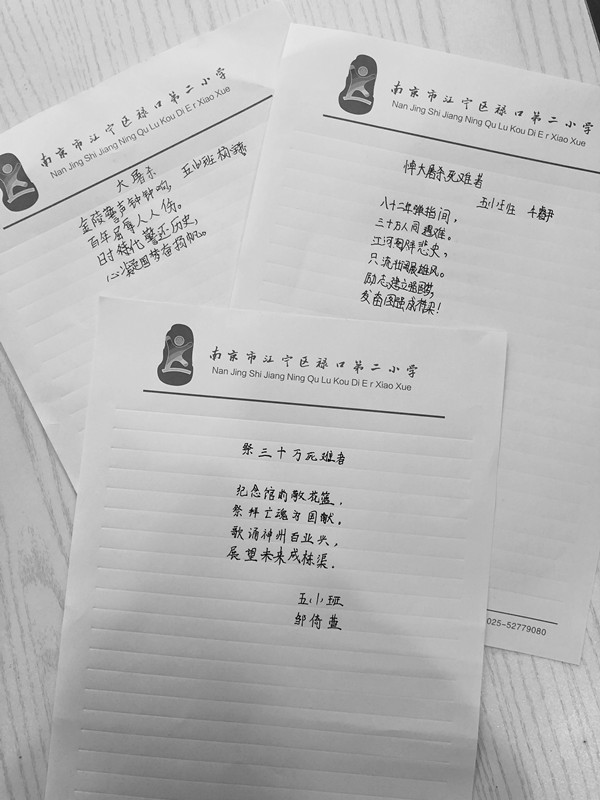 南京市江宁区禄口第二小学
Nan Jing Shi Jiang Ning Qu Lu Kou Di E r Xiao Xue
大屠杀
五(小)班
金陵警声钟钟响,
百年屈辱人人伤。
时代警还历史,
圆梦奋扬帆。
南京市江宁区禄口第二小学
Nan Jing Shi Jiang Ning Qu Lu Kou Di E r Xiao Xue
悼大屠杀死难者
八十二年弹指间,
三十万人同遇难。
江河悲史,
只流展雄风。
励志建立强国梦,
发奋图强成栋梁!
025-52779080
南京市江宁区禄口第二小学
Nan Jing Shi Jiang Ning Qu Lu Kou Di E r Xiao Xue
祭三十万死难者
纪念馆前敬花篮,
祭拜亡魂为国献。
歌诵神州百业兴,
展望未来成栋渠.
五(小)班
邹倚萱